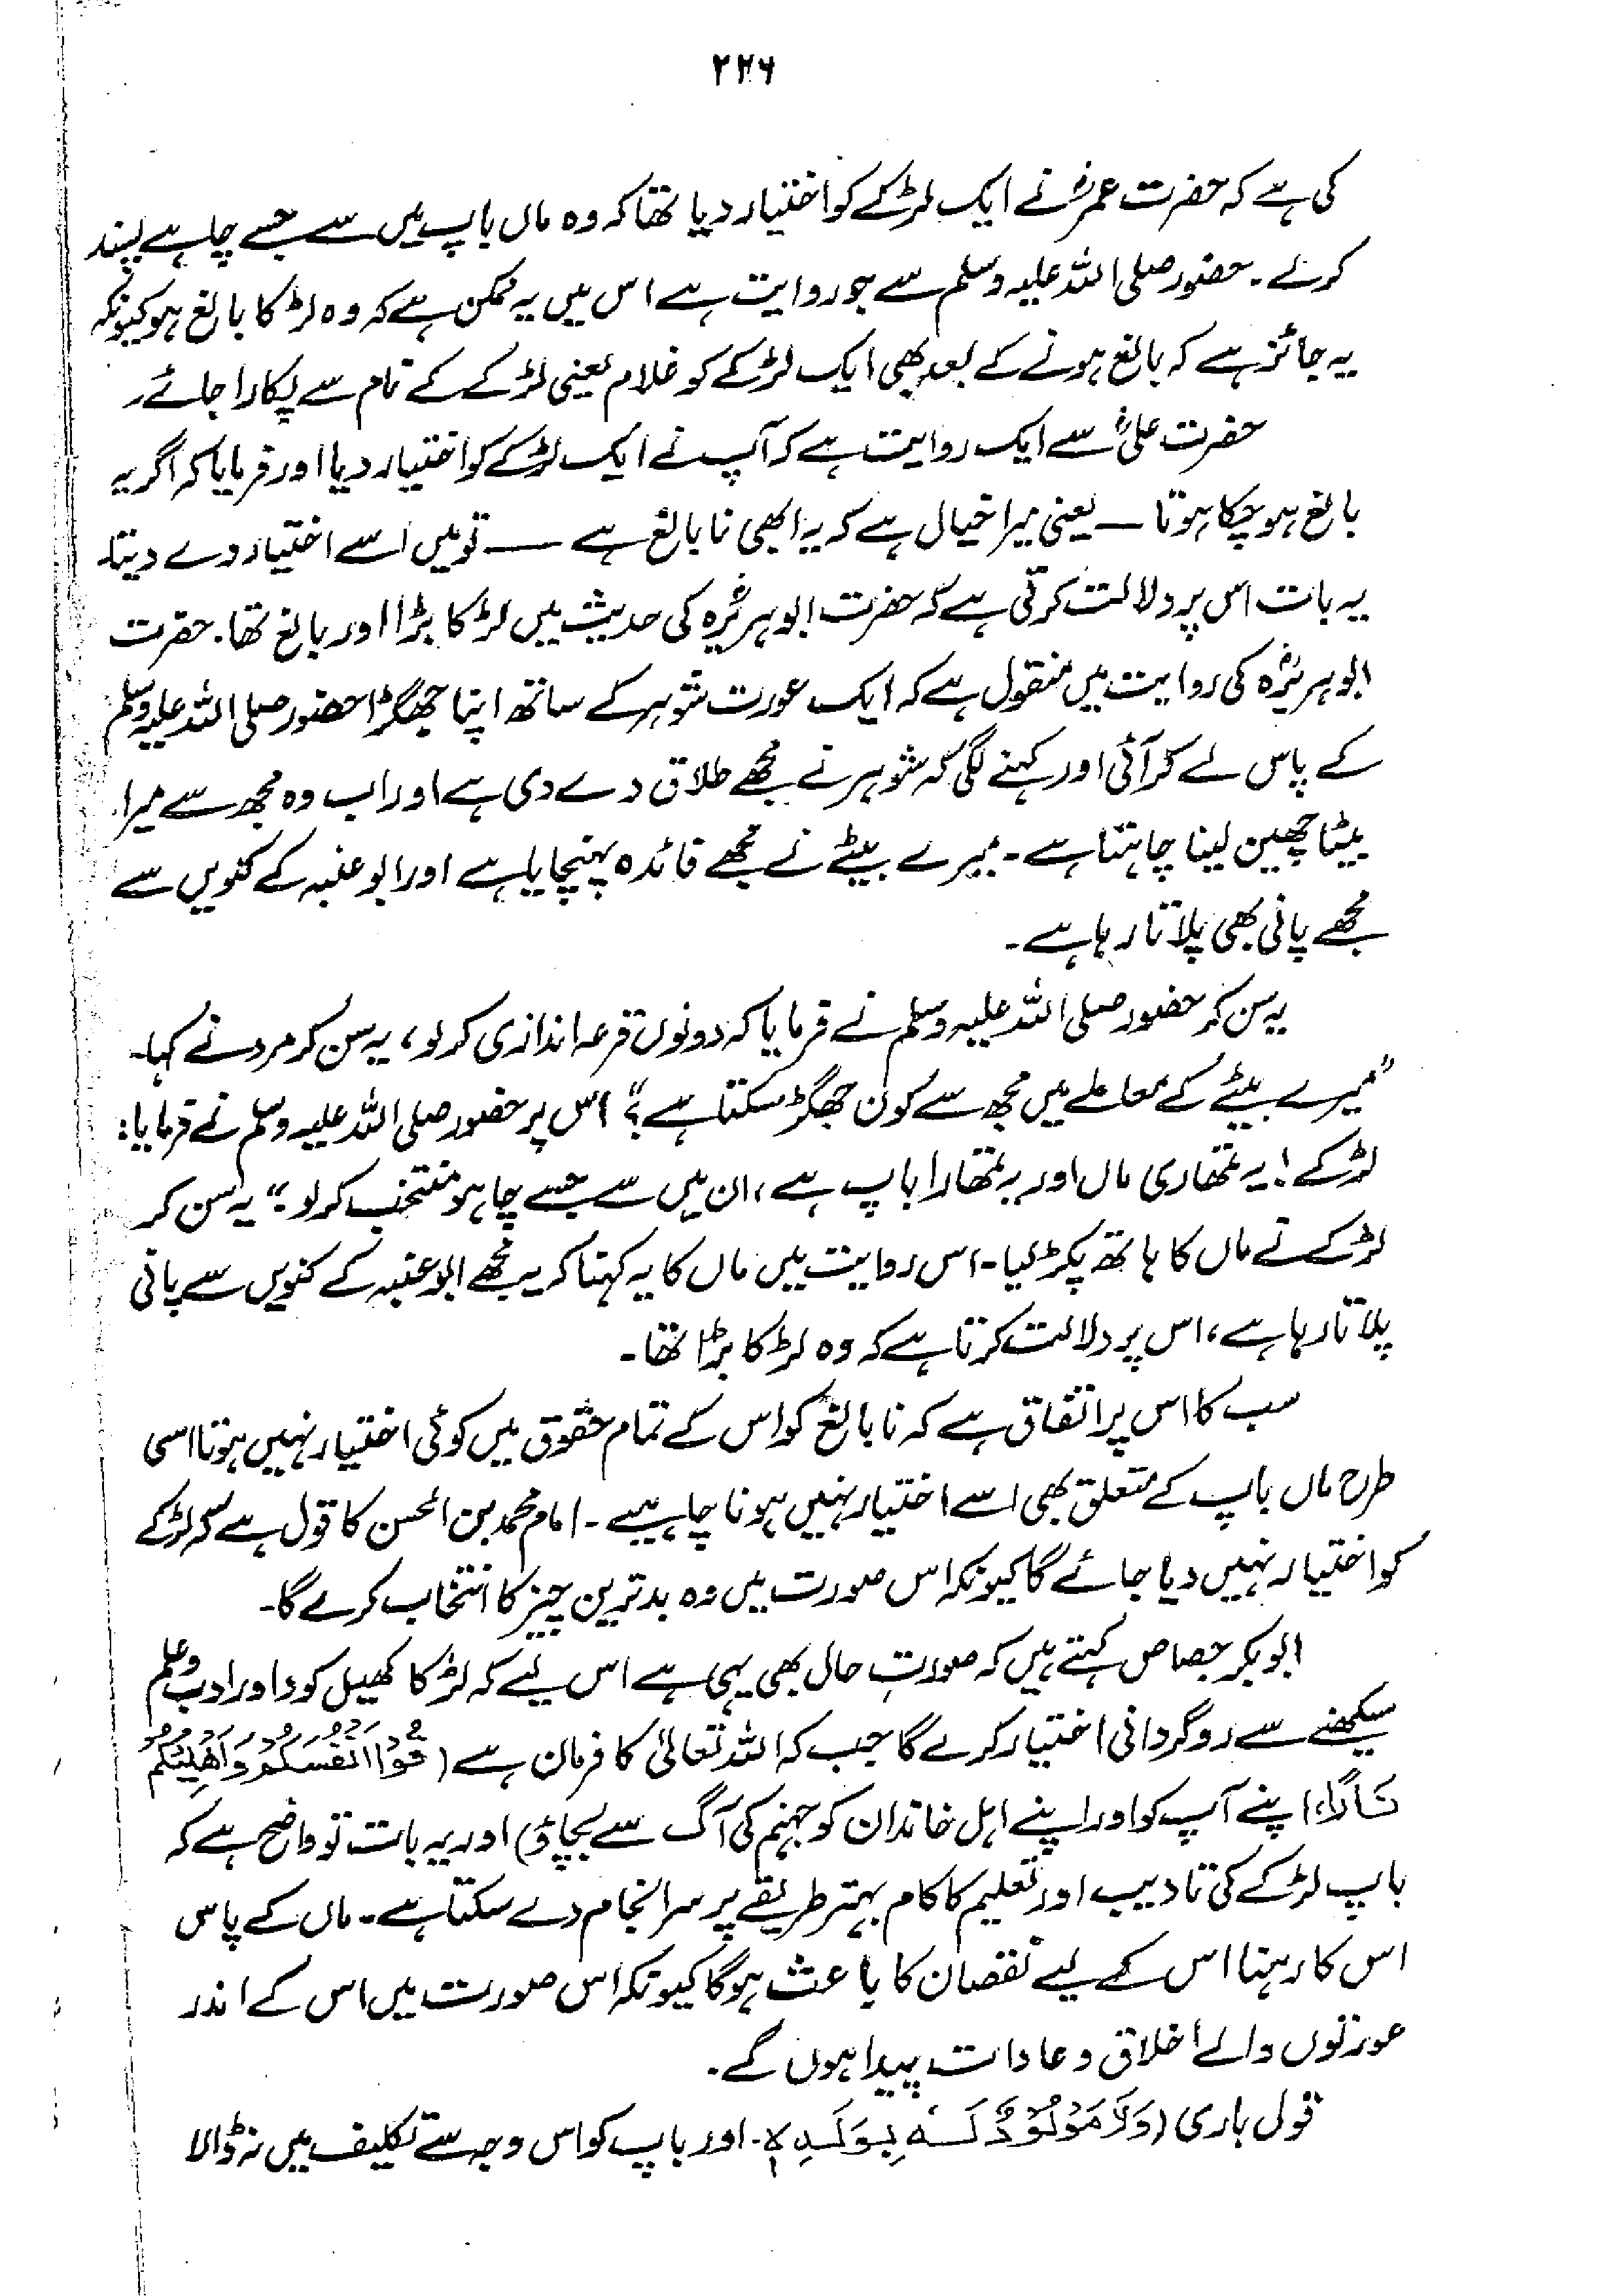 ۲۲۶
کی ہے کہ حضرت عمرؓ نے ایک لڑکے کو اختیار دیا تھا کہ وہ ماں باپ میں سے جسے چاہے پسند
کرلے۔ حضور صلی اللہ علیہ وسلم سے جو روایت ہے اس میں یہ ممکن ہے کہ وہ لڑکا بالغ ہو کیونکہ
یہ جائز ہے کہ بالغ ہونے کے بعد بھی ایک لڑکے کو غلام یعنی لڑکے کے نام سے پکارا جائے۔
حضرت علیؓ سے ایک روایت ہے کہ آپ نے ایک لڑکے کو اختیار دیا اور فرمایا کہ اگر یہ
بالغ ہو چکا ہوتا — یعنی میرا خیال ہے کہ یہ ابھی نابالغ ہے — تو میں اسے اختیار دے دیتا۔
یہ بات اس پر دلالت کرتی ہے کہ حضرت ابوہریرہؓ کی حدیث میں لڑکا بڑا اور بالغ تھا۔ حضرت
ابوہریرہؓ کی روایت میں منقول ہے کہ ایک عورت شوہر کے ساتھ اپنا جھگڑا حضور صلی اللہ علیہ وسلم
کے پاس لے کر آئی اور کہنے لگی کہ شوہر نے مجھے طلاق دے دی ہے اور اب وہ مجھ سے میرا
بیٹا چھین لینا چاہتا ہے۔ میرے بیٹے نے مجھے فائدہ پہنچایا ہے اور ابو عنبہ کے کنویں سے
مجھے پانی بھی پلاتا رہا ہے۔
یہ سن کر حضور صلی اللہ علیہ وسلم نے فرمایا کہ دونوں قرعہ اندازی کر لو، یہ سن کر مرد نے کہا۔
"میرے بیٹے کے معاملے میں مجھ سے کون جھگڑ سکتا ہے؟" اس پر حضور صلی اللہ علیہ وسلم نے فرمایا:
لڑکے! یہ تمھاری ماں اور یہ تمھارا باپ ہے، ان میں سے جسے چاہو منتخب کر لو۔" یہ سن کر
لڑکے نے ماں کا ہاتھ پکڑ لیا۔ اس روایت میں ماں کا یہ کہنا کہ یہ مجھے ابو عنبہ کے کنویں سے پانی
پلاتا رہا ہے، اس پر دلالت کرتا ہے کہ وہ لڑکا بڑا تھا۔
سب کا اس پر اتفاق ہے کہ نابالغ کو اس کے تمام حقوق میں کوئی اختیار نہیں ہوتا اسی
طرح ماں باپ کے متعلق بھی اسے اختیار نہیں ہونا چاہیے۔ امام محمد بن الحسن کا قول ہے کہ لڑکے
کو اختیار نہیں دیا جائے گا کیونکہ اس صورت میں وہ بدترین چیز کا انتخاب کرے گا۔
ابوبکر جصاص کہتے ہیں کہ صورتِ حال بھی یہی ہے اس لیے کہ لڑکا کھیل کود اور ادب و علم
سیکھنے سے روگردانی اختیار کرے گا جب کہ اللہ تعالیٰ کا فرمان ہے (قُوْا اَنْفُسَكُمْ وَاَهْلِيْكُمْ
نَارًا، اپنے آپ کو اور اپنے اہل خاندان کو جہنم کی آگ سے بچاؤ) اور یہ بات تو واضح ہے کہ
باپ لڑکے کی تادیب اور تعلیم کا کام بہتر طریقے پر سرانجام دے سکتا ہے۔ ماں کے پاس
اس کا رہنا اس کے لیے نقصان کا باعث ہوگا کیونکہ اس صورت میں اس کے اندر
عورتوں والے اخلاق و عادات پیدا ہوں گے۔
قول باری (وَلَا مَوْلُوْدٌ لَّهٗ بِوَلَدِهٖ۔ اور باپ کو اس وجہ سے تکلیف میں نہ ڈالا